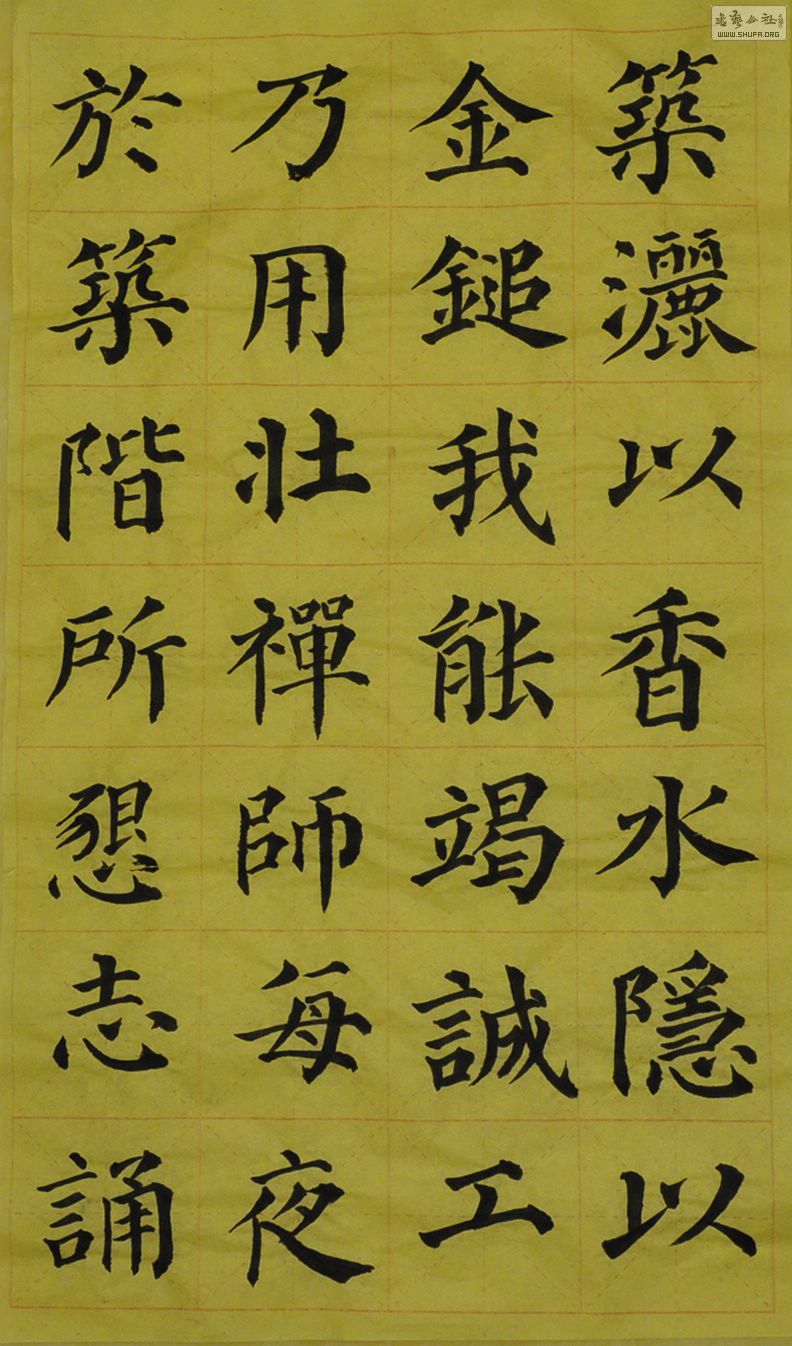 築灑以香水隱以
金鎚我能竭誠工
乃用壯禪師每夜
於築階所懇志誦
書藝公社
WWW.SHUFA.ORG